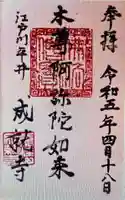 奉拝 令和五年四月十八日
本尊阿弥陀如来
江戸川平井 成就寺